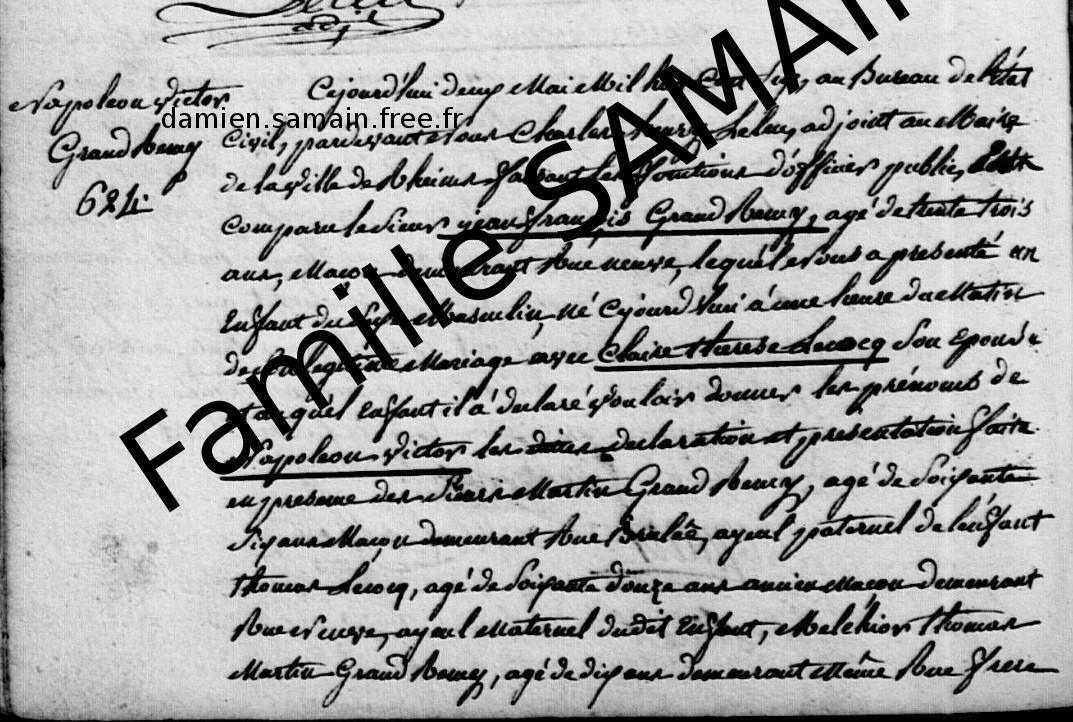 Napoleon Victor
Grand Remy
624.
Cejourd'hui deux Mai Mil huit Cent Six, au Bureau de l'état
Civil, pardevant Nous Charles henry Lelm, adjoint au Maire
de la Ville de Rheims faisant les fonctions d'officier public,
comparu le Sieur jean françois Grand Remy, agé de trente trois
ans, Maçon demeurant Rue neuve, lequel Nous a presenté un
Enfant du Sexe Masculin, Né Cejourd'hui à une heure du Matin
de Son legitime Mariage avec Claire therese Lecocq Son Epouse
et auquel Enfant il à declaré Vouloir donner les prénoms de
Napoleon Victor les dites declaration et presentation faite
en presence des Sieurs Martin Grand Remy, agé de Soixante
Six ans Maçon demeurant Rue Brulée, ayeul paternel de l'enfant
thomas Lecocq, agé de Soixante douze ans ancien Maçon demeurant
Rue Neuve, ayeul Maternel dudit Enfant, Melchior thomas
Martin Grand Remy, agé de dix ans demeurant Même Rue frere
damien.samain.free.fr
Famille SAMAI